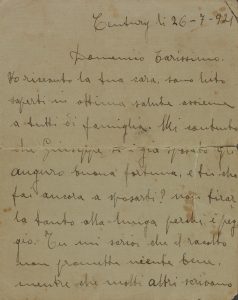 Century li 26-7-921
Domenico Carissimo.
Ho ricevuto la tua cara, sono lieto
saperti in ottima salute assieme
a tutti di famiglia. Mi
che Giuseppe si è già sposato gli
auguro buona fortuna, e tu che
fai ancora a sposarti? non tirar
la tanto alla lunga perchè è peg
gio. Tu mi scrivi che il racolto
non promette niente bene,
mentre che molti altri scrivono